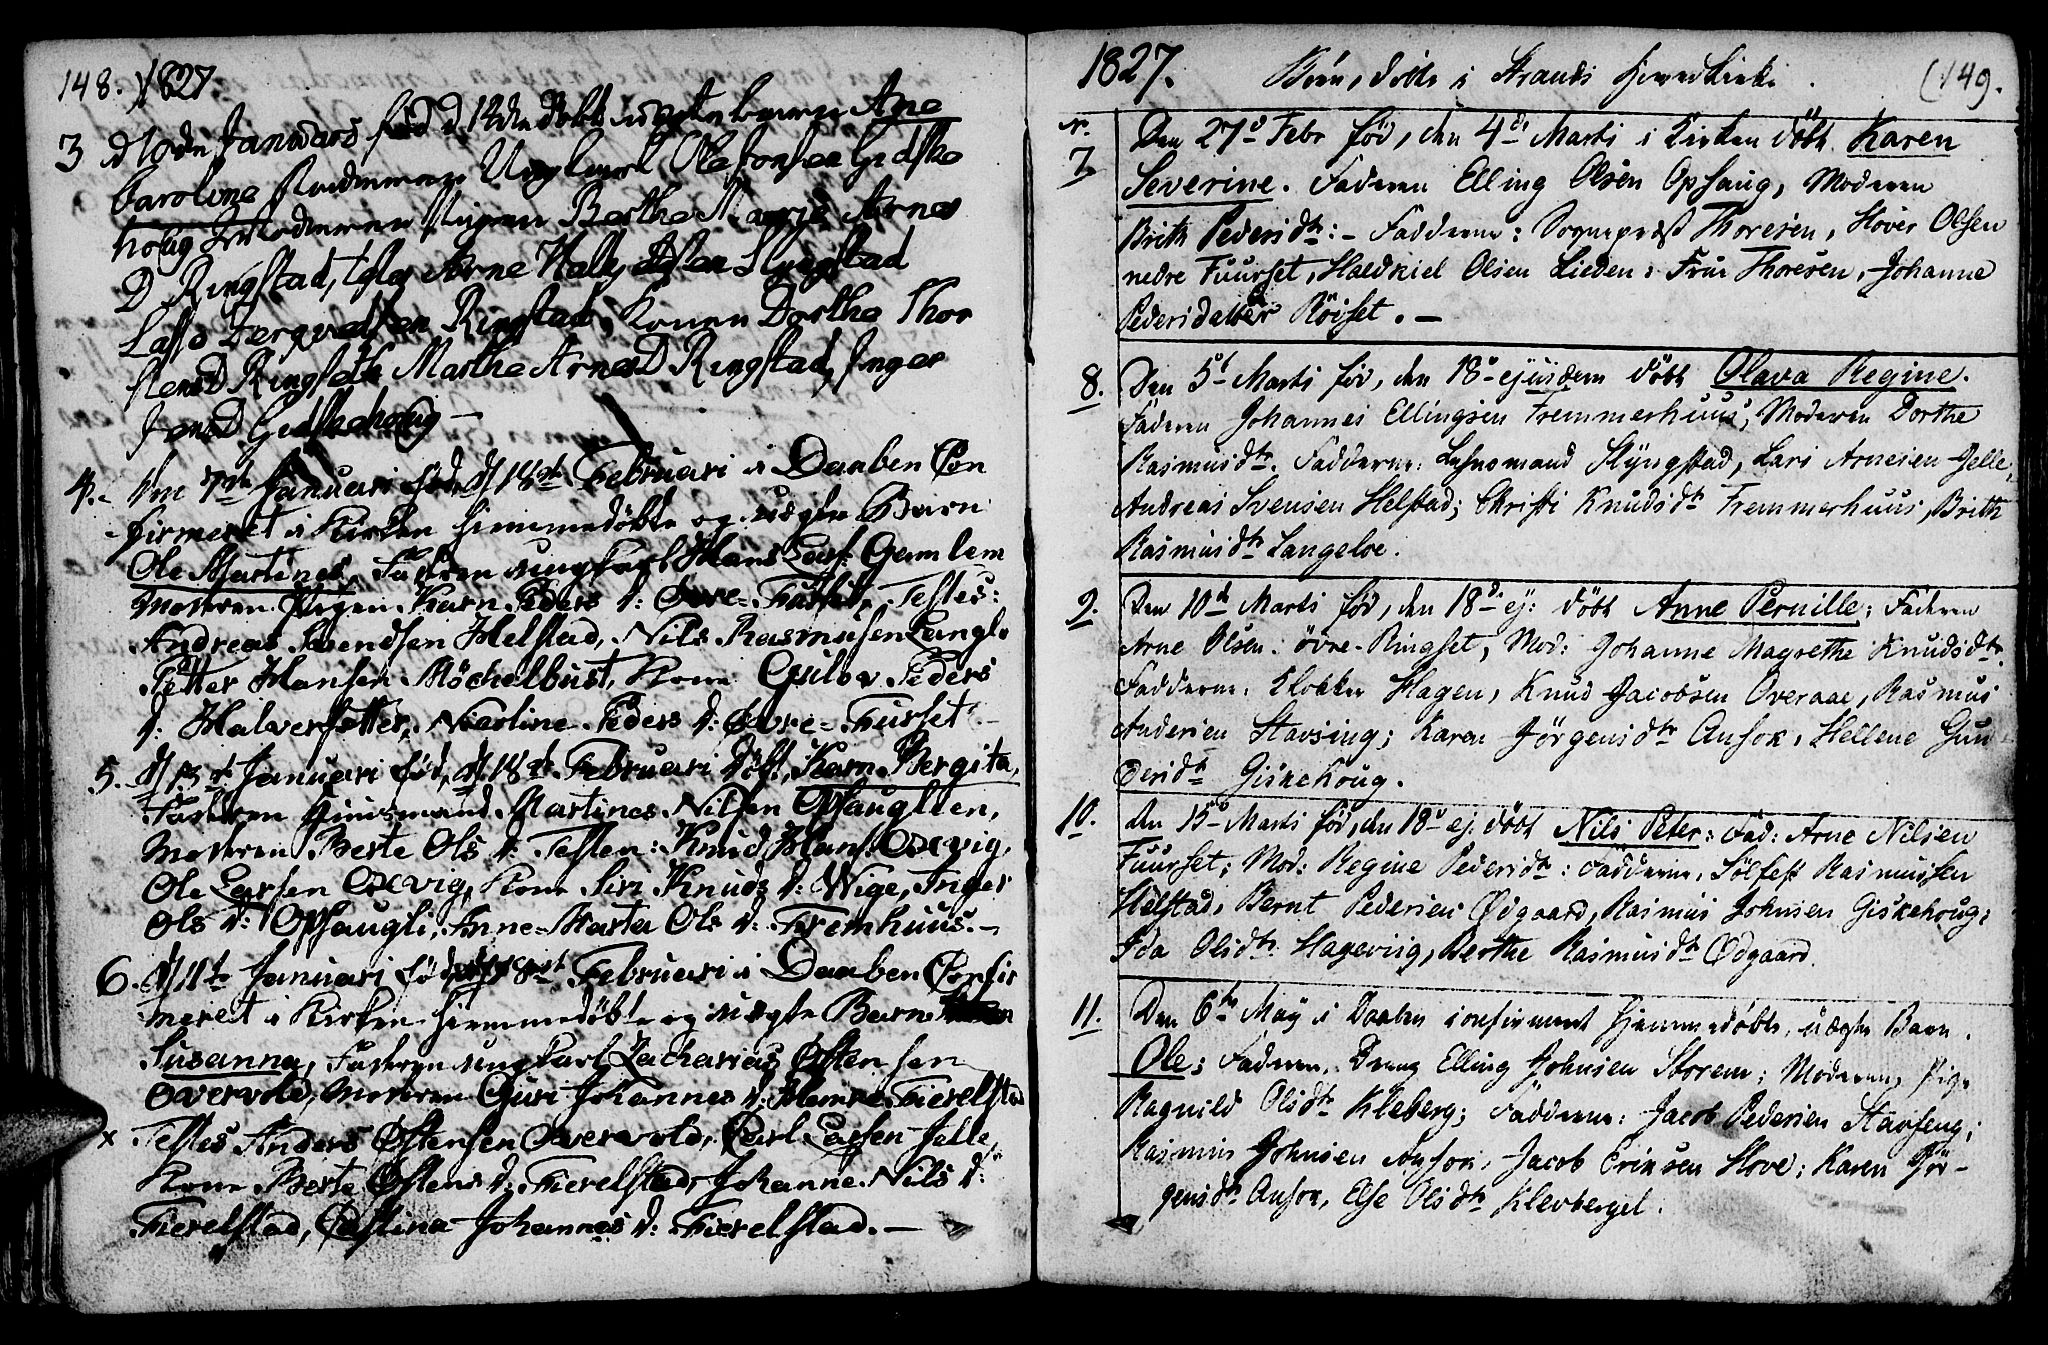 148. 1827.
3 d 10de Januars fød d 12de døbt uægte barn Ane
Caroline Ungkarl Ole Jonsen Gidske
houg Moderen Pigen Berthe Marie Arnes
D Ringstad, Arne Halv Slyngstad
Lasse Ringstad, Konen Dorthe Thor
stensD Ringseth Marthe ArnesD Ringstad, Inger
JensD Gidskehoug —
4.- Den 7de Januari fød, d 18de Februari i Daaben Con
firmeret i Kirken hjemmedøbte og uægte Barn
Ole Martines, Faderen ungkarl Hans Gamlem
Moderen Pigen Karn Peders d: Øvre-Furset, Testes:
Andreas Svendsen Helstad, Nils Rasmusen Langlo
Petter Hansen Möchelbust, Kone Peders
d: Halversetter, Karoline Peders d: Øvre-Furset —
5. d 13de Januari fød, d 18de Februari döbt, Karn Bergita,
Faderen Huusmand Martines Nilsen Opsauglien,
Moderen Berte Ols d: Testes: Knud Hans Oxevig,
Ole Larsen Oxevig, Kone Siri Knuds d: Wige, Inger
Ols d: Opsaugli, Anne-Marta Ols d: Fremhuus. -
6. d 11te Januari fød, d 18de Februari i Daaben Confir
meret i Kirken hjemmedøbte og uægte Barn
Susanna, Faderen ungkarl Zacharias Østensen
Overvold, Moderen Guri Johannes d: Fierelstad
x Testes Anders Østensen Overvold, Carl Larsen Jelle,
Kone Berte Østens d: Fierelstad, Johanne Nils d:
Fierelstad, Johannes d: Fierelstad. —
1827. Börn, döbte i Strands Hovedkirke. (149.
N.
7. Den 27d Febr fød, den 4d Marti i Kirken döbt Karen
Severine. Faderen Elling Olsen Opsaug, Moderen
Brith Pedersdtr: - Fadderne: Sognepræst Thoresen, Siver Olsen
nedre Fuurset, Olsen Lieden: Frue Thoresen, Johanne
Pedersdatter Röiset. —
8. Den 5d Marti fød, den 18d ejusdem döbt Olava Regine.
Faderen Johannes Ellingsen Fremmerhuus, Moderen Dorthe
Rasmusdtr. Fadderne: Lehnsmand Slyngstad, Lars Arnesen Jelle,
Andreas Svensen Helstad; Christi Knudsdtr Fremmerhuus, Brith
Rasmusdtr Langeloe.
9. Den 10de Marti fød, den 18de ej: döbt Anne Pernille; Faderen
Arne Olsen övre-Ringset, Mod: Johanne Magrethe Knudsdtr.
Fadderne, Klokker Hagen, Knud Jacobsen Overaae, Rasmus
Andersen Stavsing; Karen Jörgensdtr Ansok, Hellene Gun
dersdtr Giskehoug.
10. Den 15d Marti fød, den 18d ej. döbt Nils Peter: Fad: Arne Nilsen
Fuurset; Mod: Regine Pedersdtr: Fadderne, Sölfest Rasmussen
Helstad, Bernt Pedersen Ødgaard, Rasmus Johnsen Giskehoug;
Ida Olsdtr Hageviig, Berthe Rasmusdtr Ødgaard.
11. Den 6te May i Daaben confirmeret hjemmedøbte, uægte Barn.
Ole; Faderen, Dreng Elling Johnsen Storem; Moderen, Pige
Ragnild Olsdtr Kleberg; Fadderne: Jacob Pedersen Stavseng;
Rasmus Johnsen Ansok, Jacob Eriksen Hove; Karen Jör-
gensdtr Ansok, Else Olsdtr Klevberget.